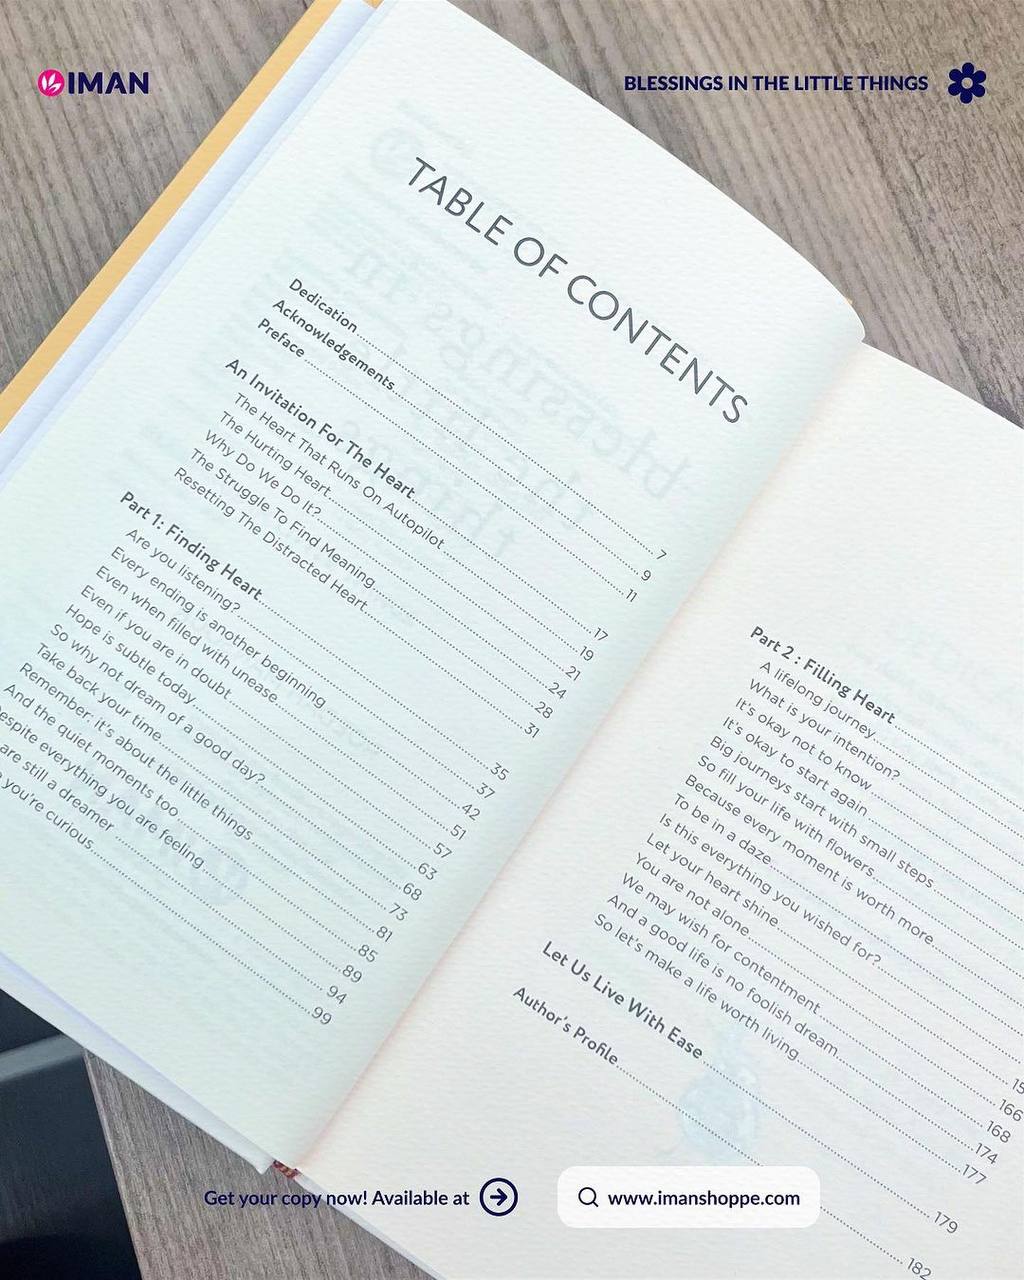 IMAN
BLESSINGS IN THE LITTLE THINGS
TABLE OF CONTENTS
Dedication 7
Acknowledgements 9
Preface 11
An Invitation For The Heart 17
The Heart That Runs On Autopilot 19
The Hurting Heart 21
Why Do We Do It? 24
The Struggle To Find Meaning 28
Resetting The Distracted Heart 31
Part 1: Finding Heart 35
Are you listening? 37
Every ending is another beginning 42
Even when filled with unease 51
Even if you are in doubt 57
Hope is subtle today 63
So why not dream of a good day? 68
Take back your time 73
Remember, it's about the little things 81
And the quiet moments too 85
espite everything you are feeling 89
are still a dreamer 94
you're curious 99
Part 2 : Filling Heart
A lifelong journey
What is your intention?
It's okay not to know
It's okay to start again
Big journeys start with small steps
So fill your life with flowers
Because every moment is worth more
To be in a daze
Is this everything you wished for?
Let your heart shine 15
You are not alone 166
We may wish for contentment 168
And a good life is no foolish dream 174
So let's make a life worth living 177
Let Us Live With Ease 179
Author's Profile 182
Get your copy now! Available at
www.imanshoppe.com